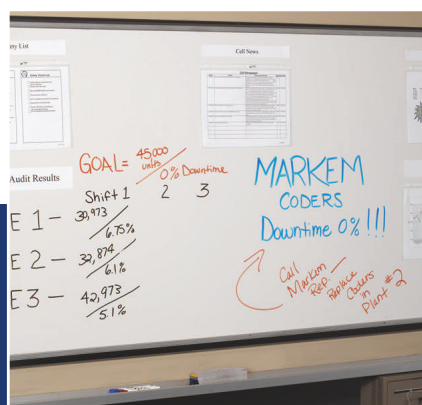 ny List
Cell News
Audit Results
GOAL= 45,000 units
0% Downtime
Shift 1 2 3
E 1 - 39,973
6.75%
E 2 - 32,874
6.1%
E3 - 42,973
5.1%
MARKEM
CODERS
Downtime 0%!!!
Call
Markem
Rep. —
Replace
Coders
in
Plant #2